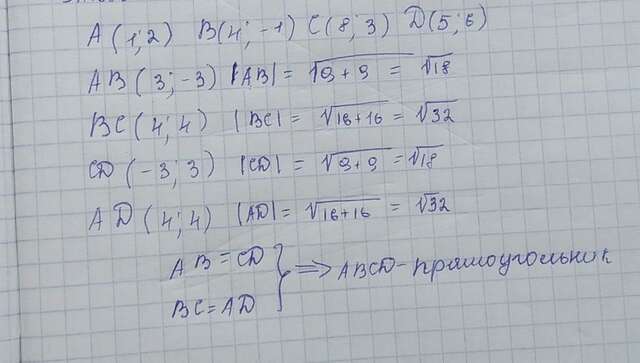 A(1;2) B(4;-1) C(8;3) D(5;6)
AB(3;-3) |AB| = √9+9 = √18
BC(4;4) |BC| = √16+16 = √32
CD(-3;3) |CD| = √9+9 = √18
AD(4;4) |AD| = √16+16 = √32
AB=CD
BC=AD } ⇒ ABCD-прямоугольник